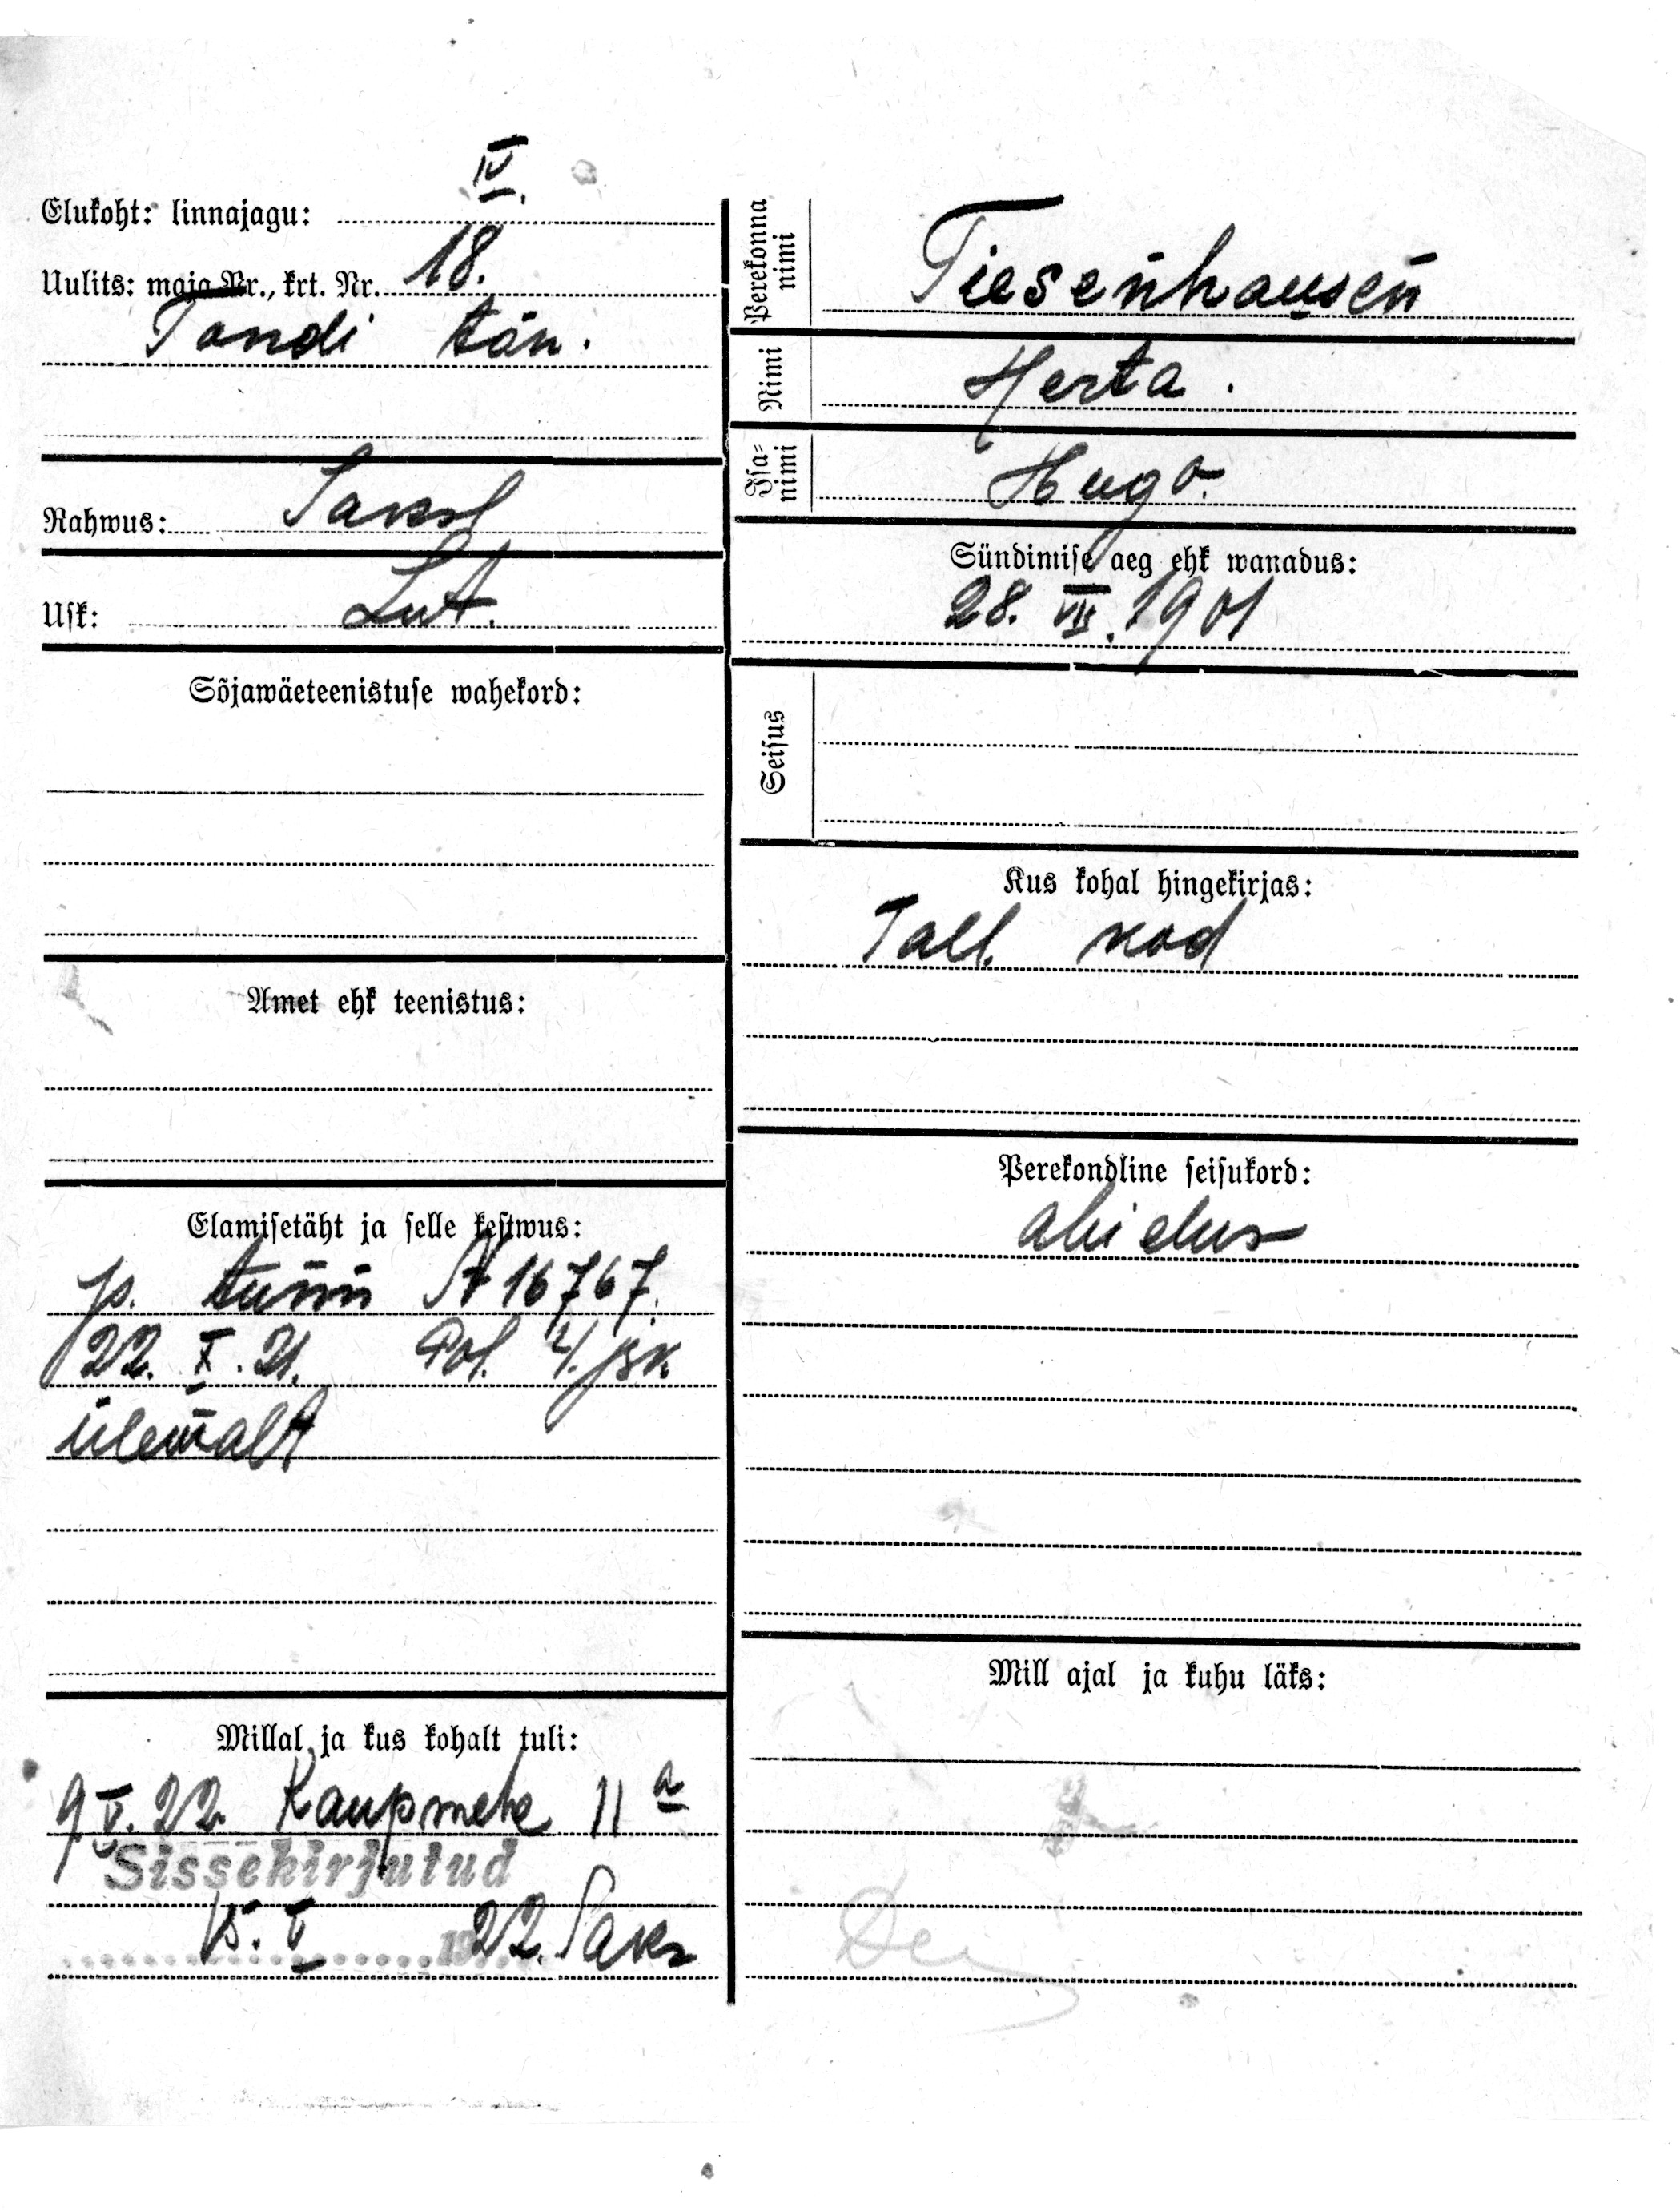 IV.
Elukoht: linnajagu:
Uulits: maja Nr., krt. Nr. 18.
Tondi tän.
Rahwus: Saksl
Usk: Lut.
Sõjawäeteenistuse wahekord:
Amet ehk teenistus:
Elamisetäht ja selle kestwus:
p. tunn № 16767.
22. X. 21. Pol. 4. jsk.
ülewalt
Millal ja kus kohalt tuli:
9 V. 22 Kaupmehe 11 a
Sissekirjutud
15. V 1922. Saks
Perekonna nimi Tiesenhausen
Nimi Herta.
Isa-nimi Hugo.
Sündimise aeg ehk wanadus:
28. VII. 1901
Seisus
Kus kohal hingekirjas:
Tall. kod
Perekondline seisukord:
abielus
Mill ajal ja kuhu läks: